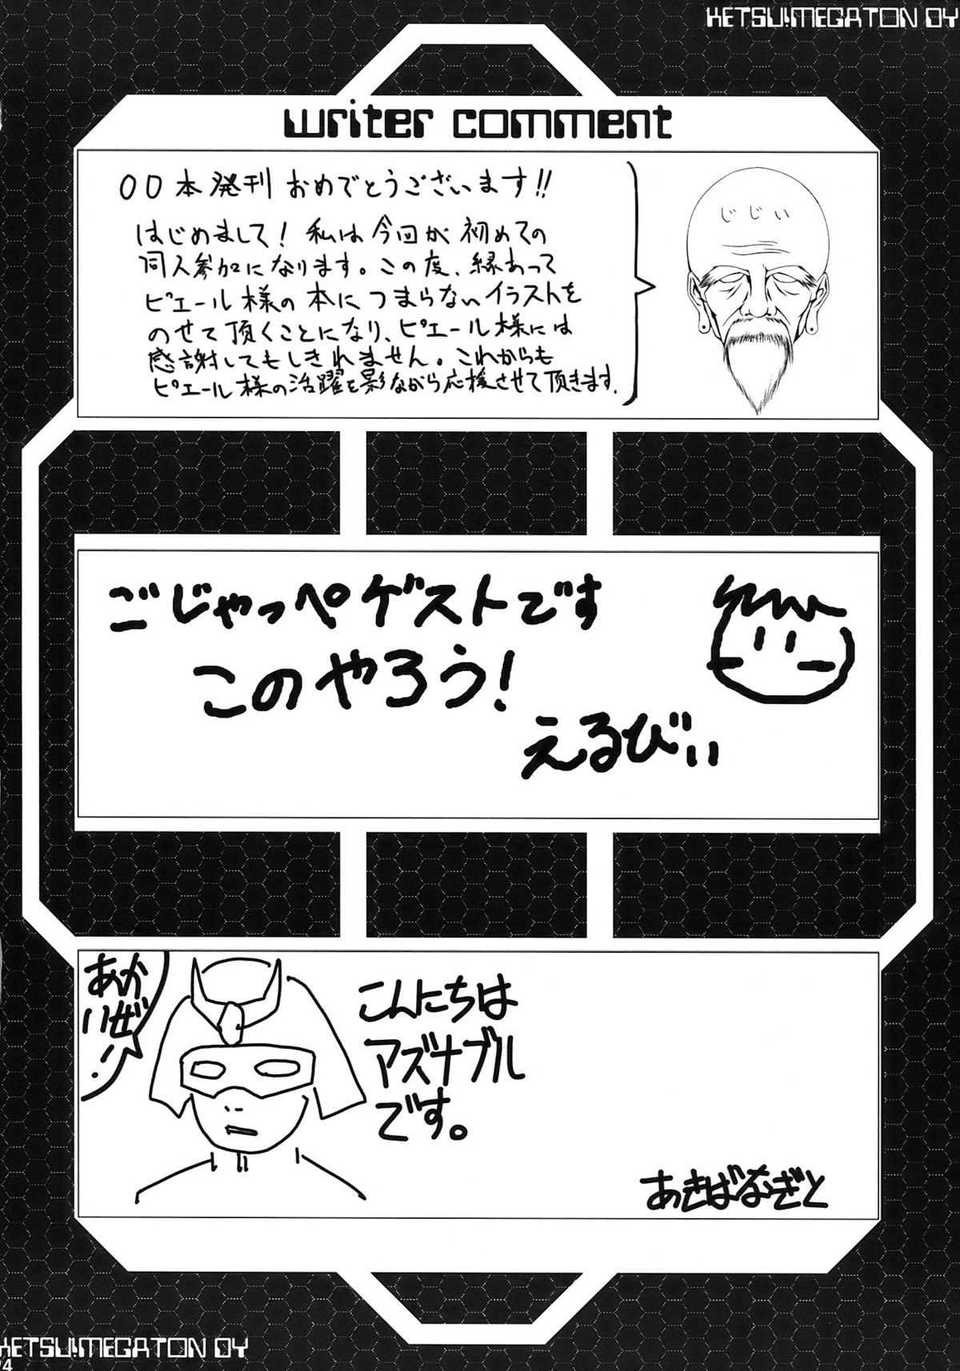 KETSU!MEGATON OY
writer comment
OO本発刊おめでとうございます!!
はじめまして!私は今回が初めての
同人参加になります。この度、縁あって
ピエール様の本につまらないイラストを
のせて頂くことになり、ピエール様には
感謝してもしきれません。これからも
ピエール様の活躍を影ながら応援させて頂きます.
じじい
ごじゃっぺゲストです
このやろう!
えるびぃ
あか
いぜ!
こんにちは
アズナブル
です。
あきばなぎと
KETSU!MEGATON OY
24